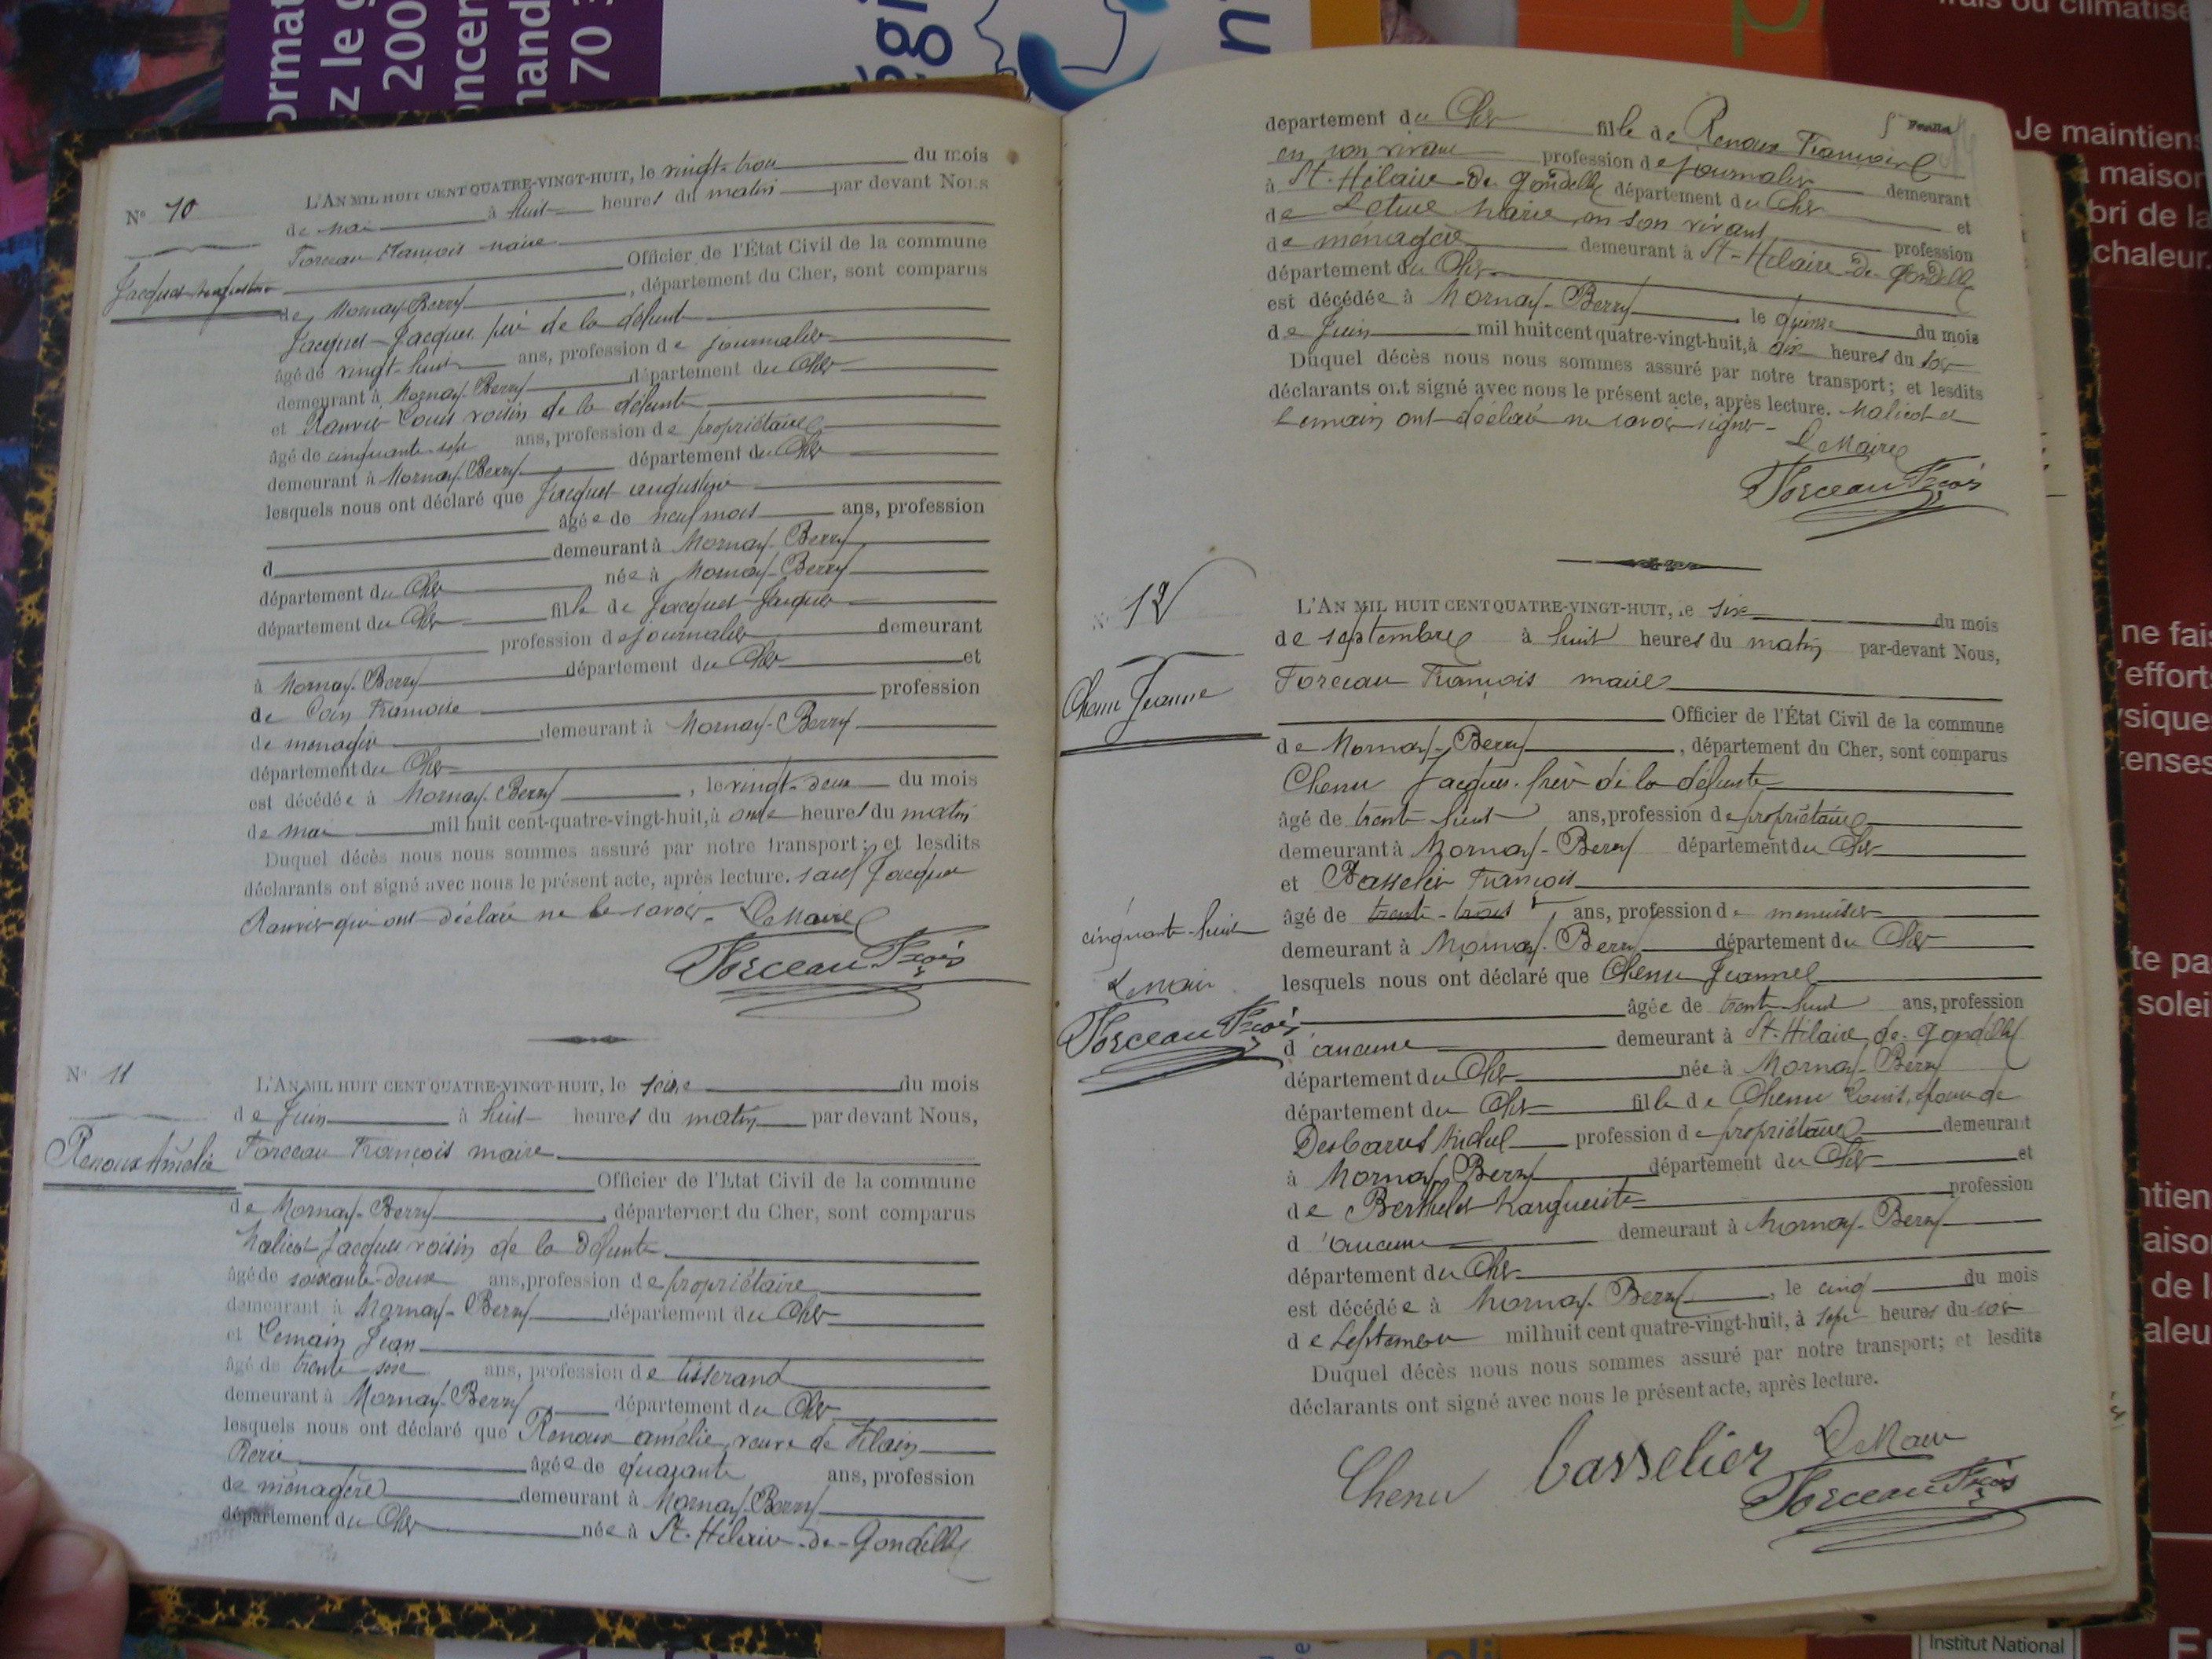 N° 10
Jacquet Augustine
L'AN MIL HUIT CENT QUATRE-VINGT-HUIT, le vingt-trois du mois
de Mai à huit heures du matin par devant Nous
Forceau François maire
Officier de l'État Civil de la commune
de Mornay-Berry, département du Cher, sont comparus
Jacquet Jacques père de la défunte
âgé de vingt-huit ans, profession de journalier
demeurant à Mornay-Berry département du Cher
et Ranvier Louis voisin de la défunte
âgé de cinquante-sept ans, profession de propriétaire
demeurant à Mornay-Berry département du Cher
lesquels nous ont déclaré que Jacquet augustine
âgée de neuf mois ans, profession
d demeurant à Mornay-Berry
département du Cher née à Mornay-Berry
département du Cher fille de Jacquet Jacques
profession de journalier demeurant
à Mornay-Berry département du Cher et
de Coin Françoise profession
de ménagère demeurant à Mornay-Berry
département du Cher
est décédée à Mornay-Berry, le vingt-deux du mois
de mai mil huit cent-quatre-vingt-huit, à onze heures du matin
Duquel décès nous nous sommes assuré par notre transport; et lesdits
déclarants ont signé avec nous le présent acte, après lecture. sauf Jacquet
Ranvier qui ont déclaré ne le savoir. Le Maire
Forceau Fçois
N° 11
Renoux Amélie
L'AN MIL HUIT CENT QUATRE-VINGT-HUIT, le seize du mois
de Juin à huit heures du matin par devant Nous,
Forceau François maire
Officier de l'Etat Civil de la commune
de Mornay-Berry, département du Cher, sont comparus
Malicot Jacques voisin de la défunte
âgé de soixante-deux ans, profession de propriétaire
demeurant à Mornay-Berry département du Cher
et Lemain Jean
âgé de trente-seize ans, profession de tisserand
demeurant à Mornay-Berry département du Cher
lesquels nous ont déclaré que Renoux amélie, veuve de
Pierre âgée de quarante ans, profession
de ménagère demeurant à Mornay-Berry
département du Cher née à St-Hilaire-de-Gondilly
5e Feuillet
département du Cher fille de Renoux François
en son vivant profession de journalier demeurant
à St-Hilaire-de-Gondilly département du Cher et
de Marie, en son vivant profession
de ménagère demeurant à St-Hilaire-de-Gondilly
département du Cher
est décédée à Mornay-Berry le quinze du mois
de Juin mil huit cent quatre-vingt-huit, à dix heures du soir
Duquel décès nous nous sommes assuré par notre transport; et lesdits
déclarants ont signé avec nous le présent acte, après lecture. Malicot et
Lemain ont déclaré ne savoir signer-
Le Maire
Forceau Fçois
N° 12
Chenu Jeanne
L'AN MIL HUIT CENT QUATRE-VINGT-HUIT, le six du mois
de septembre à huit heures du matin par-devant Nous,
Forceau François maire
Officier de l'État Civil de la commune
de Mornay-Berry, département du Cher, sont comparus
Chenu Jacques frère de la défunte
âgé de trente-huit ans, profession de propriétaire
demeurant à Mornay-Berry département du Cher
et Basselier François
âgé de trente-trois ans, profession de menuisier
cinquante-huit
Le Maire
Forceau Fçois
demeurant à Mornay-Berry département du Cher
lesquels nous ont déclaré que Chenu Jeanne
âgée de trente-huit ans, profession
d'aucune demeurant à St-Hilaire-de-Gondilly
département du Cher née à Mornay-Berry
département du Cher fille de Chenu Louis, épouse de
Desbarres Michel profession de propriétaire demeurant
à Mornay-Berry département du Cher et
de Berthelot Marguerite profession
d'aucune demeurant à Mornay-Berry
département du Cher
est décédée à Mornay-Berry, le cinq du mois
de Septembre mil huit cent quatre-vingt-huit, à sept heures du soir
Duquel décès nous nous sommes assuré par notre transport; et lesdits
déclarants ont signé avec nous le présent acte, après lecture.
Chenu Basselier Le Maire
Forceau Fçois
Je maintiens
maison
bri de la
chaleur.
ne fais
soleil
Institut National